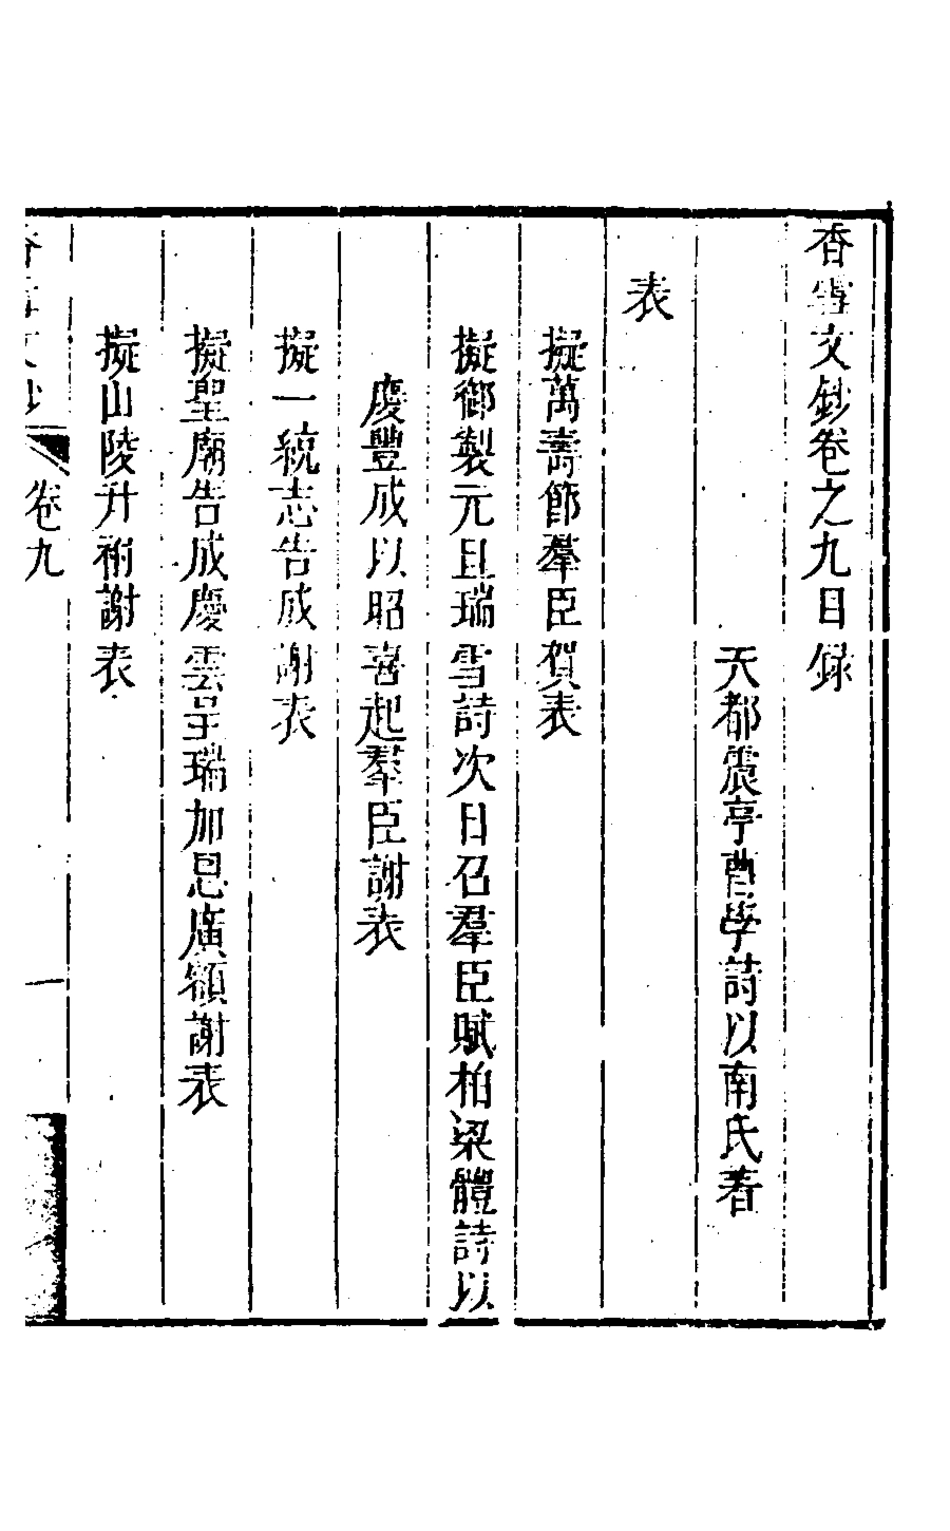 香雪文鈔卷之九目録
天都震亭曹學詩以南氏著
表
擬萬壽節羣臣賀表
擬御製元旦瑞雪詩次日召羣臣賦柏梁體詩以
慶豐成以昭喜起羣臣謝表
擬一統志告成謝表
擬聖廟告成慶雲呈瑞加恩廣額謝表
擬山陵升祔謝表
香雪文鈔 卷九 一